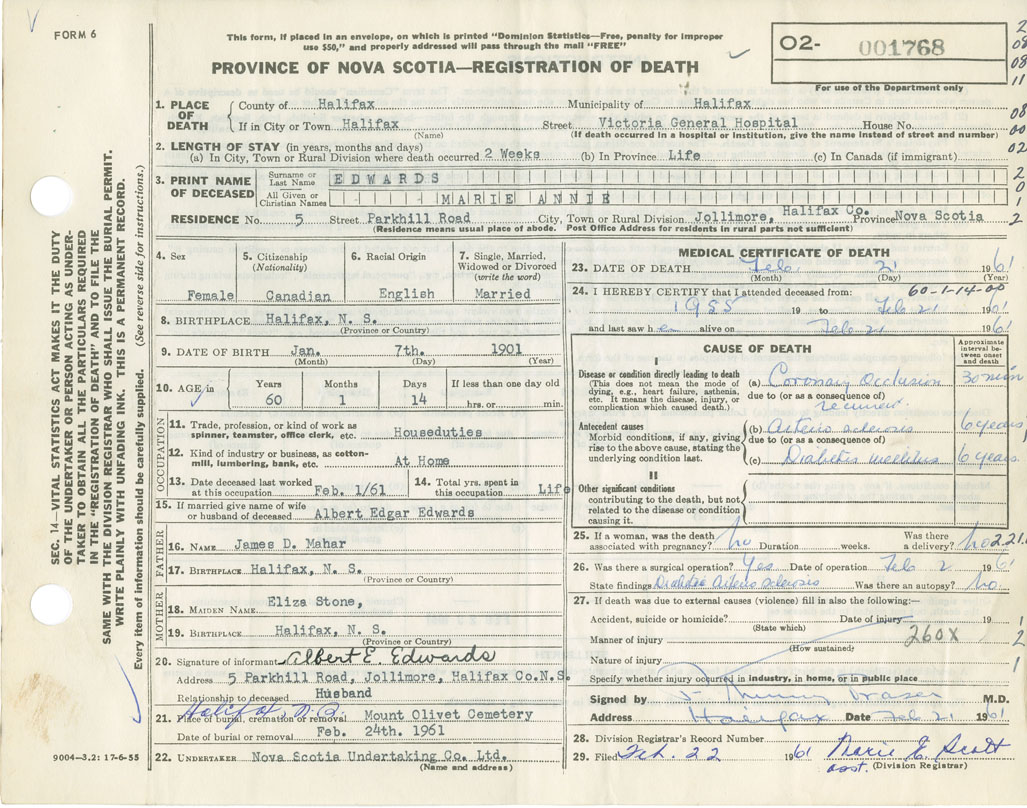 FORM 6
This form, if placed in an envelope, on which is printed "Dominion Statistics—Free, penalty for improper
use $50," and properly addressed will pass through the mail "FREE"
PROVINCE OF NOVA SCOTIA—REGISTRATION OF DEATH
02- 001768
For use of the Department only
2
08
08
11
08
00
02
2
0
1
2
1. PLACE OF DEATH { County of Halifax Municipality of Halifax
If in City or Town Halifax Street Victoria General Hospital House No.
(Name) (If death occurred in a hospital or institution, give the name instead of street and number)
2. LENGTH OF STAY (in years, months and days)
(a) In City, Town or Rural Division where death occurred 2 Weeks (b) In Province Life (c) In Canada (if immigrant)
3. PRINT NAME OF DECEASED
Surname or Last Name EDWARDS
All Given or Christian Names MARIE ANNIE
RESIDENCE No. 5 Street Parkhill Road City, Town or Rural Division Jollimore, Halifax Co. Province Nova Scotia
(Residence means usual place of abode. Post Office Address for residents in rural parts not sufficient)
4. Sex Female
5. Citizenship (Nationality) Canadian
6. Racial Origin English
7. Single, Married, Widowed or Divorced (write the word) Married
8. BIRTHPLACE Halifax, N. S.
(Province or Country)
9. DATE OF BIRTH Jan. 7th. 1901
(Month) (Day) (Year)
10. AGE in Years Months Days If less than one day old
60 1 14 hrs. or min.
OCCUPATION
11. Trade, profession, or kind of work as spinner, teamster, office clerk, etc. Houseduties
12. Kind of industry or business, as cotton-mill, lumbering, bank, etc. At Home
13. Date deceased last worked at this occupation Feb. 1/61 14. Total yrs. spent in this occupation Life
15. If married give name of wife or husband of deceased Albert Edgar Edwards
FATHER
16. NAME James D. Mahar
17. BIRTHPLACE Halifax, N. S.
(Province or Country)
MOTHER
18. MAIDEN NAME Eliza Stone,
19. BIRTHPLACE Halifax, N. S.
(Province or Country)
20. Signature of informant Albert E. Edwards
Address 5 Parkhill Road, Jollimore, Halifax Co.N.S.
Relationship to deceased Husband
Halifax, N.S.
21. Place of burial, cremation or removal Mount Olivet Cemetery
Date of burial or removal Feb. 24th. 1961
22. UNDERTAKER Nova Scotia Undertaking Co. Ltd.
(Name and address)
MEDICAL CERTIFICATE OF DEATH
23. DATE OF DEATH Feb. 21 1961
(Month) (Day) (Year)
24. I HEREBY CERTIFY that I attended deceased from: 60-1-14-00
1955 19 to Feb 21 1961
and last saw her alive on Feb 21 1961
CAUSE OF DEATH
Approximate interval between onset and death
I
Disease or condition directly leading to death
(This does not mean the mode of dying, e.g., heart failure, asthma, etc. It means the disease, injury, or complication which caused death.)
(a) Coronary Occlusion 30 min
due to (or as a consequence of)
recurrent
Antecedent causes
Morbid conditions, if any, giving rise to the above cause, stating the underlying condition last.
(b) Arterio sclerosis 6 years
due to (or as a consequence of)
(c) Diabetis mellitus 6 years
II
Other significant conditions
contributing to the death, but not related to the disease or condition causing it.
25. If a woman, was the death associated with pregnancy? no Duration weeks. Was there a delivery? no 2.21.
26. Was there a surgical operation? Yes Date of operation Feb 2 1961
State findings Diabetic Arterio sclerosis Was there an autopsy? no.
27. If death was due to external causes (violence) fill in also the following:—
Accident, suicide or homicide? Date of injury 19
(State which)
Manner of injury 260X
(How sustained)
Nature of injury
Specify whether injury occurred in industry, in home, or in public place
1
2
1
Signed by Fraser M.D.
Address Halifax Date Feb 21 1961
28. Division Registrar's Record Number
29. Filed Feb. 22 1961 Marie E. Scott
asst. (Division Registrar)
SEC. 14—VITAL STATISTICS ACT MAKES IT THE DUTY
OF THE UNDERTAKER OR PERSON ACTING AS UNDER-
TAKER TO OBTAIN ALL THE PARTICULARS REQUIRED
IN THE "REGISTRATION OF DEATH" AND TO FILE THE
SAME WITH THE DIVISION REGISTRAR WHO SHALL ISSUE THE BURIAL PERMIT.
WRITE PLAINLY WITH UNFADING INK. THIS IS A PERMANENT RECORD.
Every item of information should be carefully supplied. (See reverse side for instructions.)
9004—3.2: 17-6-55